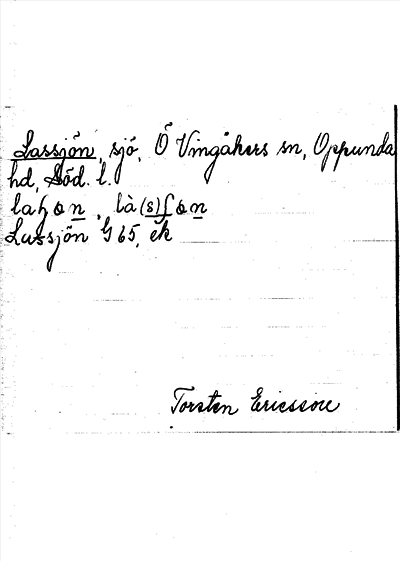 Lassjön, sjö, Ö Vingåkers sn, Oppunda
hd, Söd. l.
Lassjön G 65, ek
Torsten Ericsson